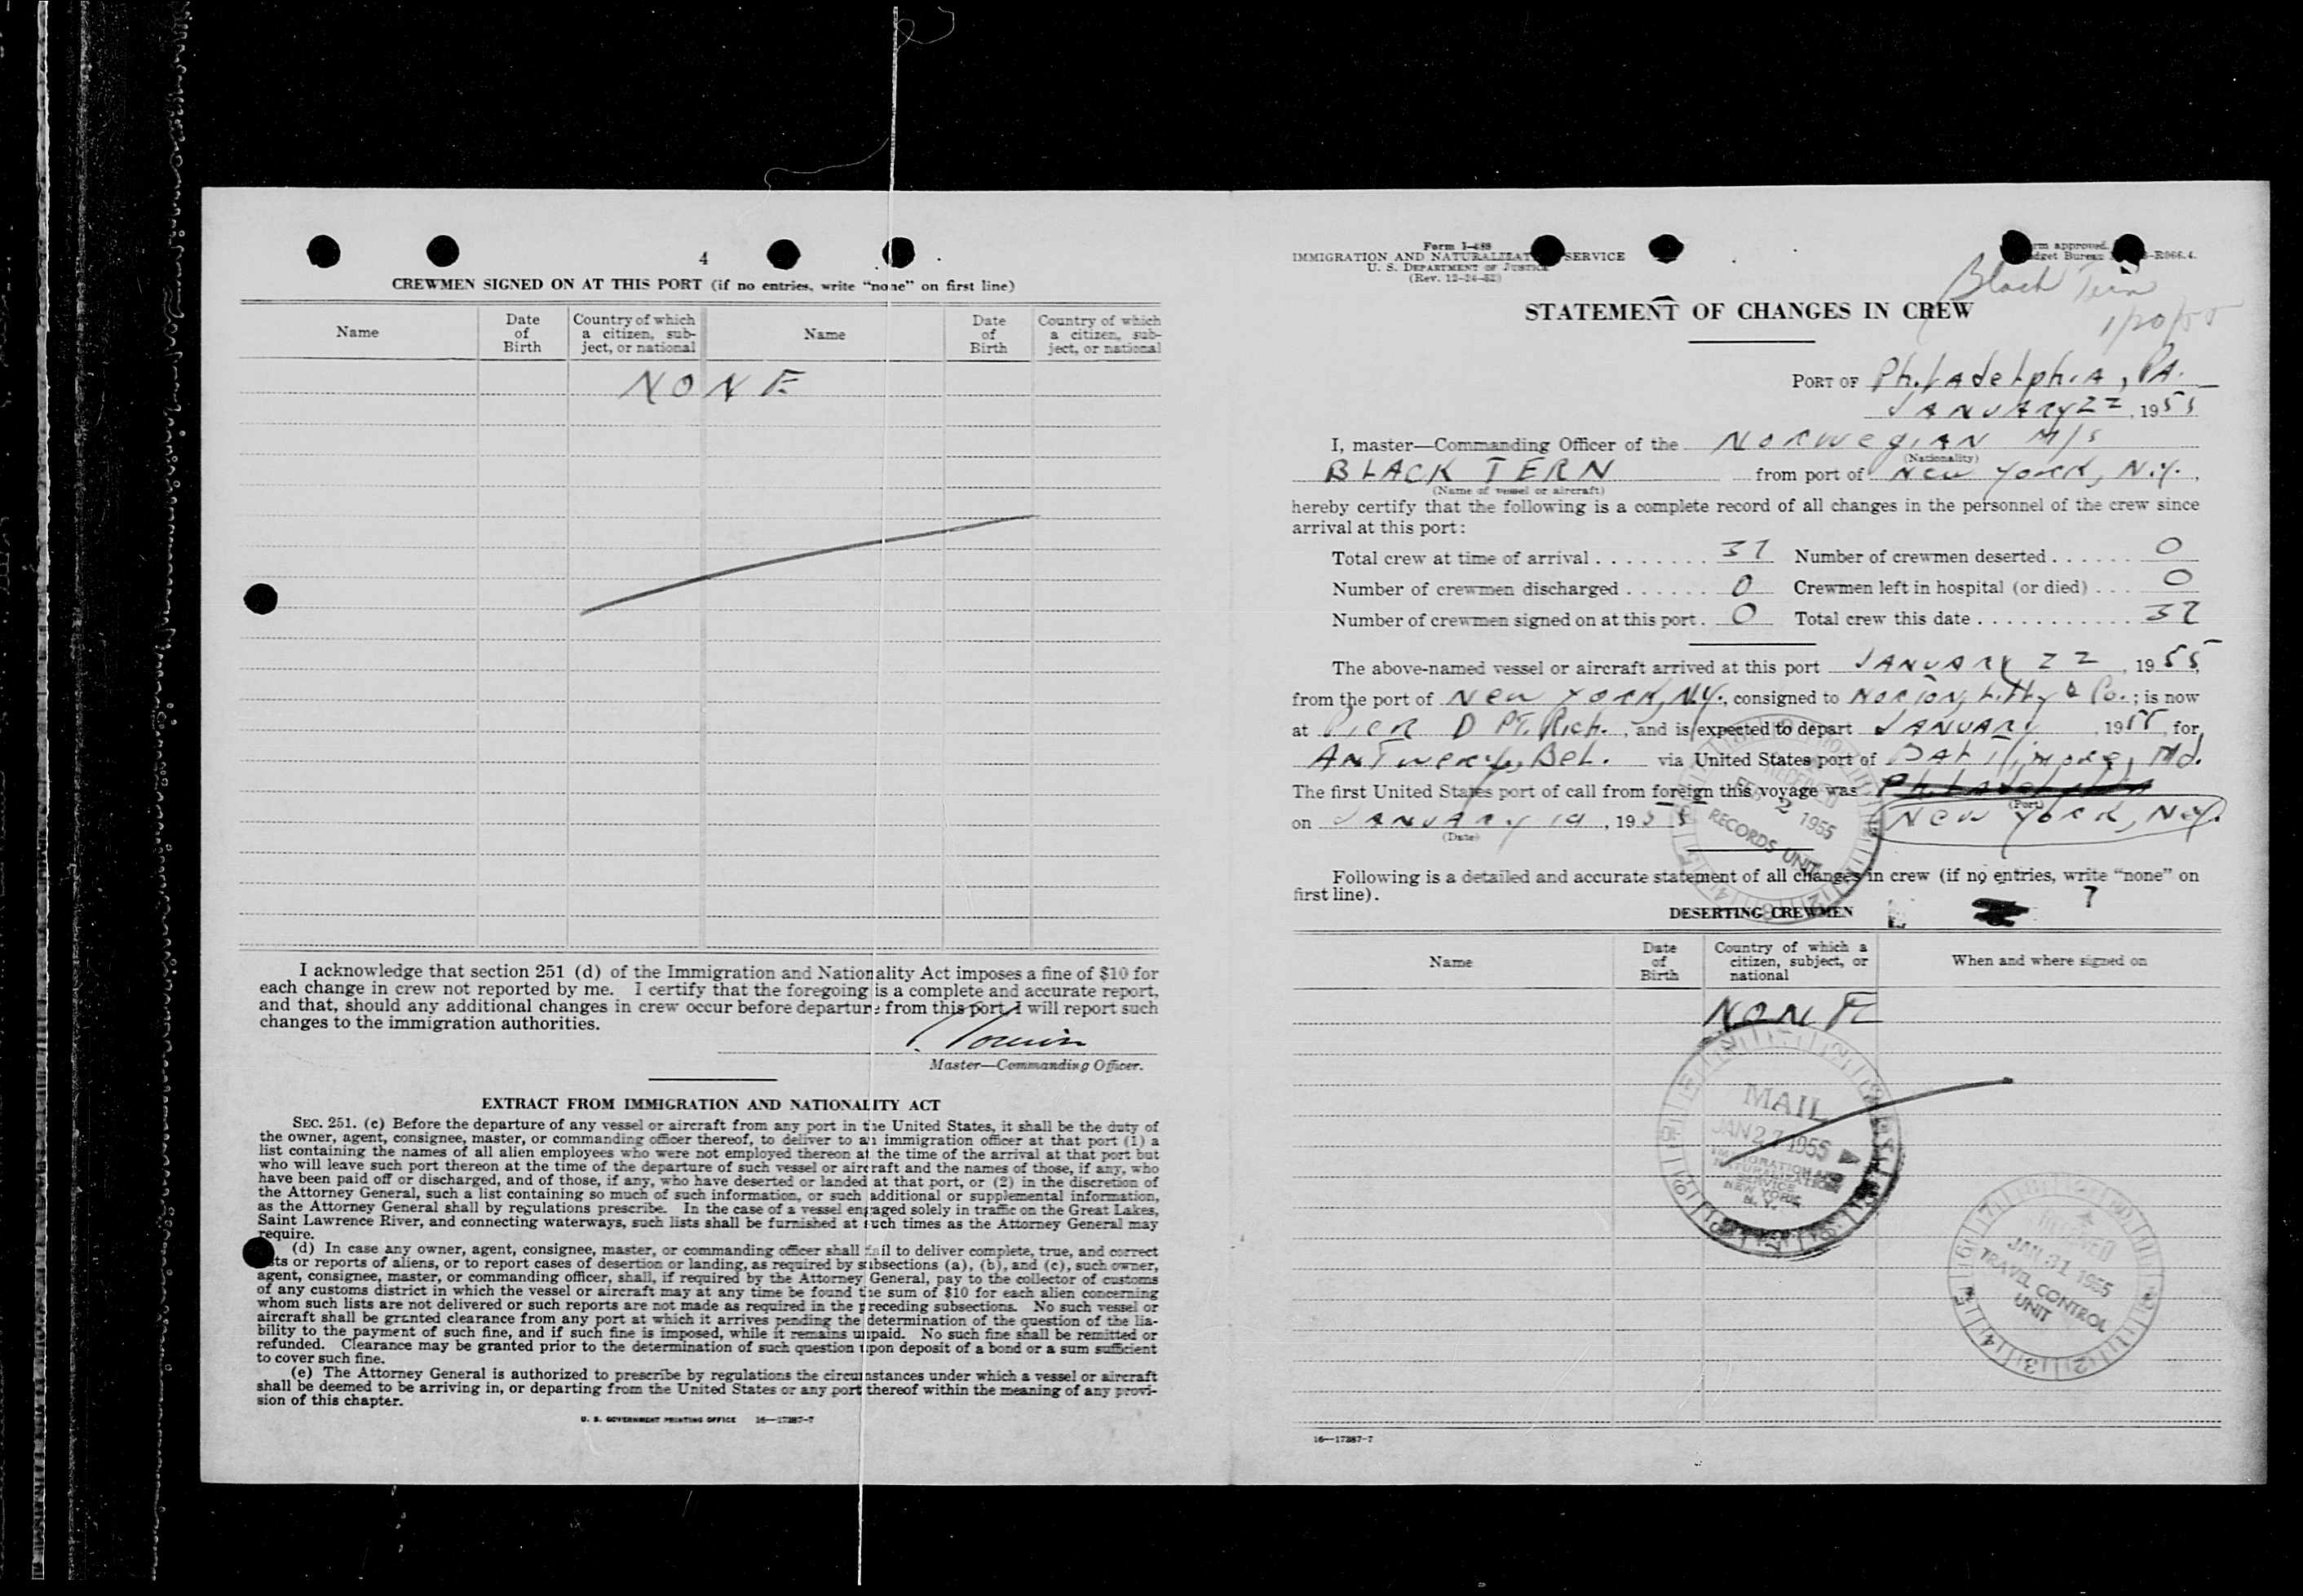 4
CREWMEN SIGNED ON AT THIS PORT (if no entries, write "none" on first line)
Name
Date of Birth
Country of which a citizen, sub-ject, or national
Name
Date of Birth
Country of which a citizen, sub-ject, or national
NONE
I acknowledge that section 251 (d) of the Immigration and Nationality Act imposes a fine of $10 for
each change in crew not reported by me. I certify that the foregoing is a complete and accurate report,
and that, should any additional changes in crew occur before departure from this port I will report such
changes to the immigration authorities.
Master—Commanding Officer.
EXTRACT FROM IMMIGRATION AND NATIONALITY ACT
SEC. 251. (c) Before the departure of any vessel or aircraft from any port in the United States, it shall be the duty of
the owner, agent, consignee, master, or commanding officer thereof, to deliver to an immigration officer at that port (1) a
list containing the names of all alien employees who were not employed thereon at the time of the arrival at that port but
who will leave such port thereon at the time of the departure of such vessel or aircraft and the names of those, if any, who
have been paid off or discharged, and of those, if any, who have deserted or landed at that port, or (2) in the discretion of
the Attorney General, such a list containing so much of such information, or such additional or supplemental information,
as the Attorney General shall by regulations prescribe. In the case of a vessel engaged solely in traffic on the Great Lakes,
Saint Lawrence River, and connecting waterways, such lists shall be furnished at such times as the Attorney General may
require.
(d) In case any owner, agent, consignee, master, or commanding officer shall fail to deliver complete, true, and correct
lists or reports of aliens, or to report cases of desertion or landing, as required by subsections (a), (b), and (c), such owner,
agent, consignee, master, or commanding officer, shall, if required by the Attorney General, pay to the collector of customs
of any customs district in which the vessel or aircraft may at any time be found the sum of $10 for each alien concerning
whom such lists are not delivered or such reports are not made as required in the preceding subsections. No such vessel or
aircraft shall be granted clearance from any port at which it arrives pending the determination of the question of the lia-
bility to the payment of such fine, and if such fine is imposed, while it remains unpaid. No such fine shall be remitted or
refunded. Clearance may be granted prior to the determination of such question upon deposit of a bond or a sum sufficient
to cover such fine.
(e) The Attorney General is authorized to prescribe by regulations the circumstances under which a vessel or aircraft
shall be deemed to be arriving in, or departing from the United States or any port thereof within the meaning of any provi-
sion of this chapter.
U. S. GOVERNMENT PRINTING OFFICE 16—17287-7
Form I-489
IMMIGRATION AND NATURALIZATION SERVICE
U. S. DEPARTMENT OF JUSTICE
(Rev. 12-24-52)
Form approved.
Budget Bureau -R066.4.
Black Tern
1/20/55
STATEMENT OF CHANGES IN CREW
PORT OF Philadelphia, PA.
JANUARY 22, 1955
I, master—Commanding Officer of the NORWEGIAN M/S
(Nationality)
BLACK TERN from port of New York, N.Y.,
(Name of vessel or aircraft)
hereby certify that the following is a complete record of all changes in the personnel of the crew since
arrival at this port:
Total crew at time of arrival ........ 37 Number of crewmen deserted ...... 0
Number of crewmen discharged ...... 0 Crewmen left in hospital (or died) ... 0
Number of crewmen signed on at this port. 0 Total crew this date ............ 37
The above-named vessel or aircraft arrived at this port JANUARY 22, 1955,
from the port of New York, N.Y., consigned to NORTON, Lilly & Co.; is now
at Pier D PT. Rich., and is expected to depart JANUARY, 1955, for
Antwerp, Bel. via United States port of Baltimore, Md.
The first United States port of call from foreign this voyage was Philadelphia
(Port)
on JANUARY 19, 1955 New York, N.Y.
(Date)
RECEIVED
FEB 2 1955
RECORDS UNIT
Following is a detailed and accurate statement of all changes in crew (if no entries, write "none" on
first line).
7
DESERTING CREWMEN
Name
Date of Birth
Country of which a citizen, subject, or national
When and where signed on
NONE
MAIL
JAN 27 1955
IMMIGRATION AND
NATURALIZATION
SERVICE
NEW YORK
N. Y.
RECEIVED
JAN 31 1955
TRAVEL CONTROL
UNIT
16—17287-7